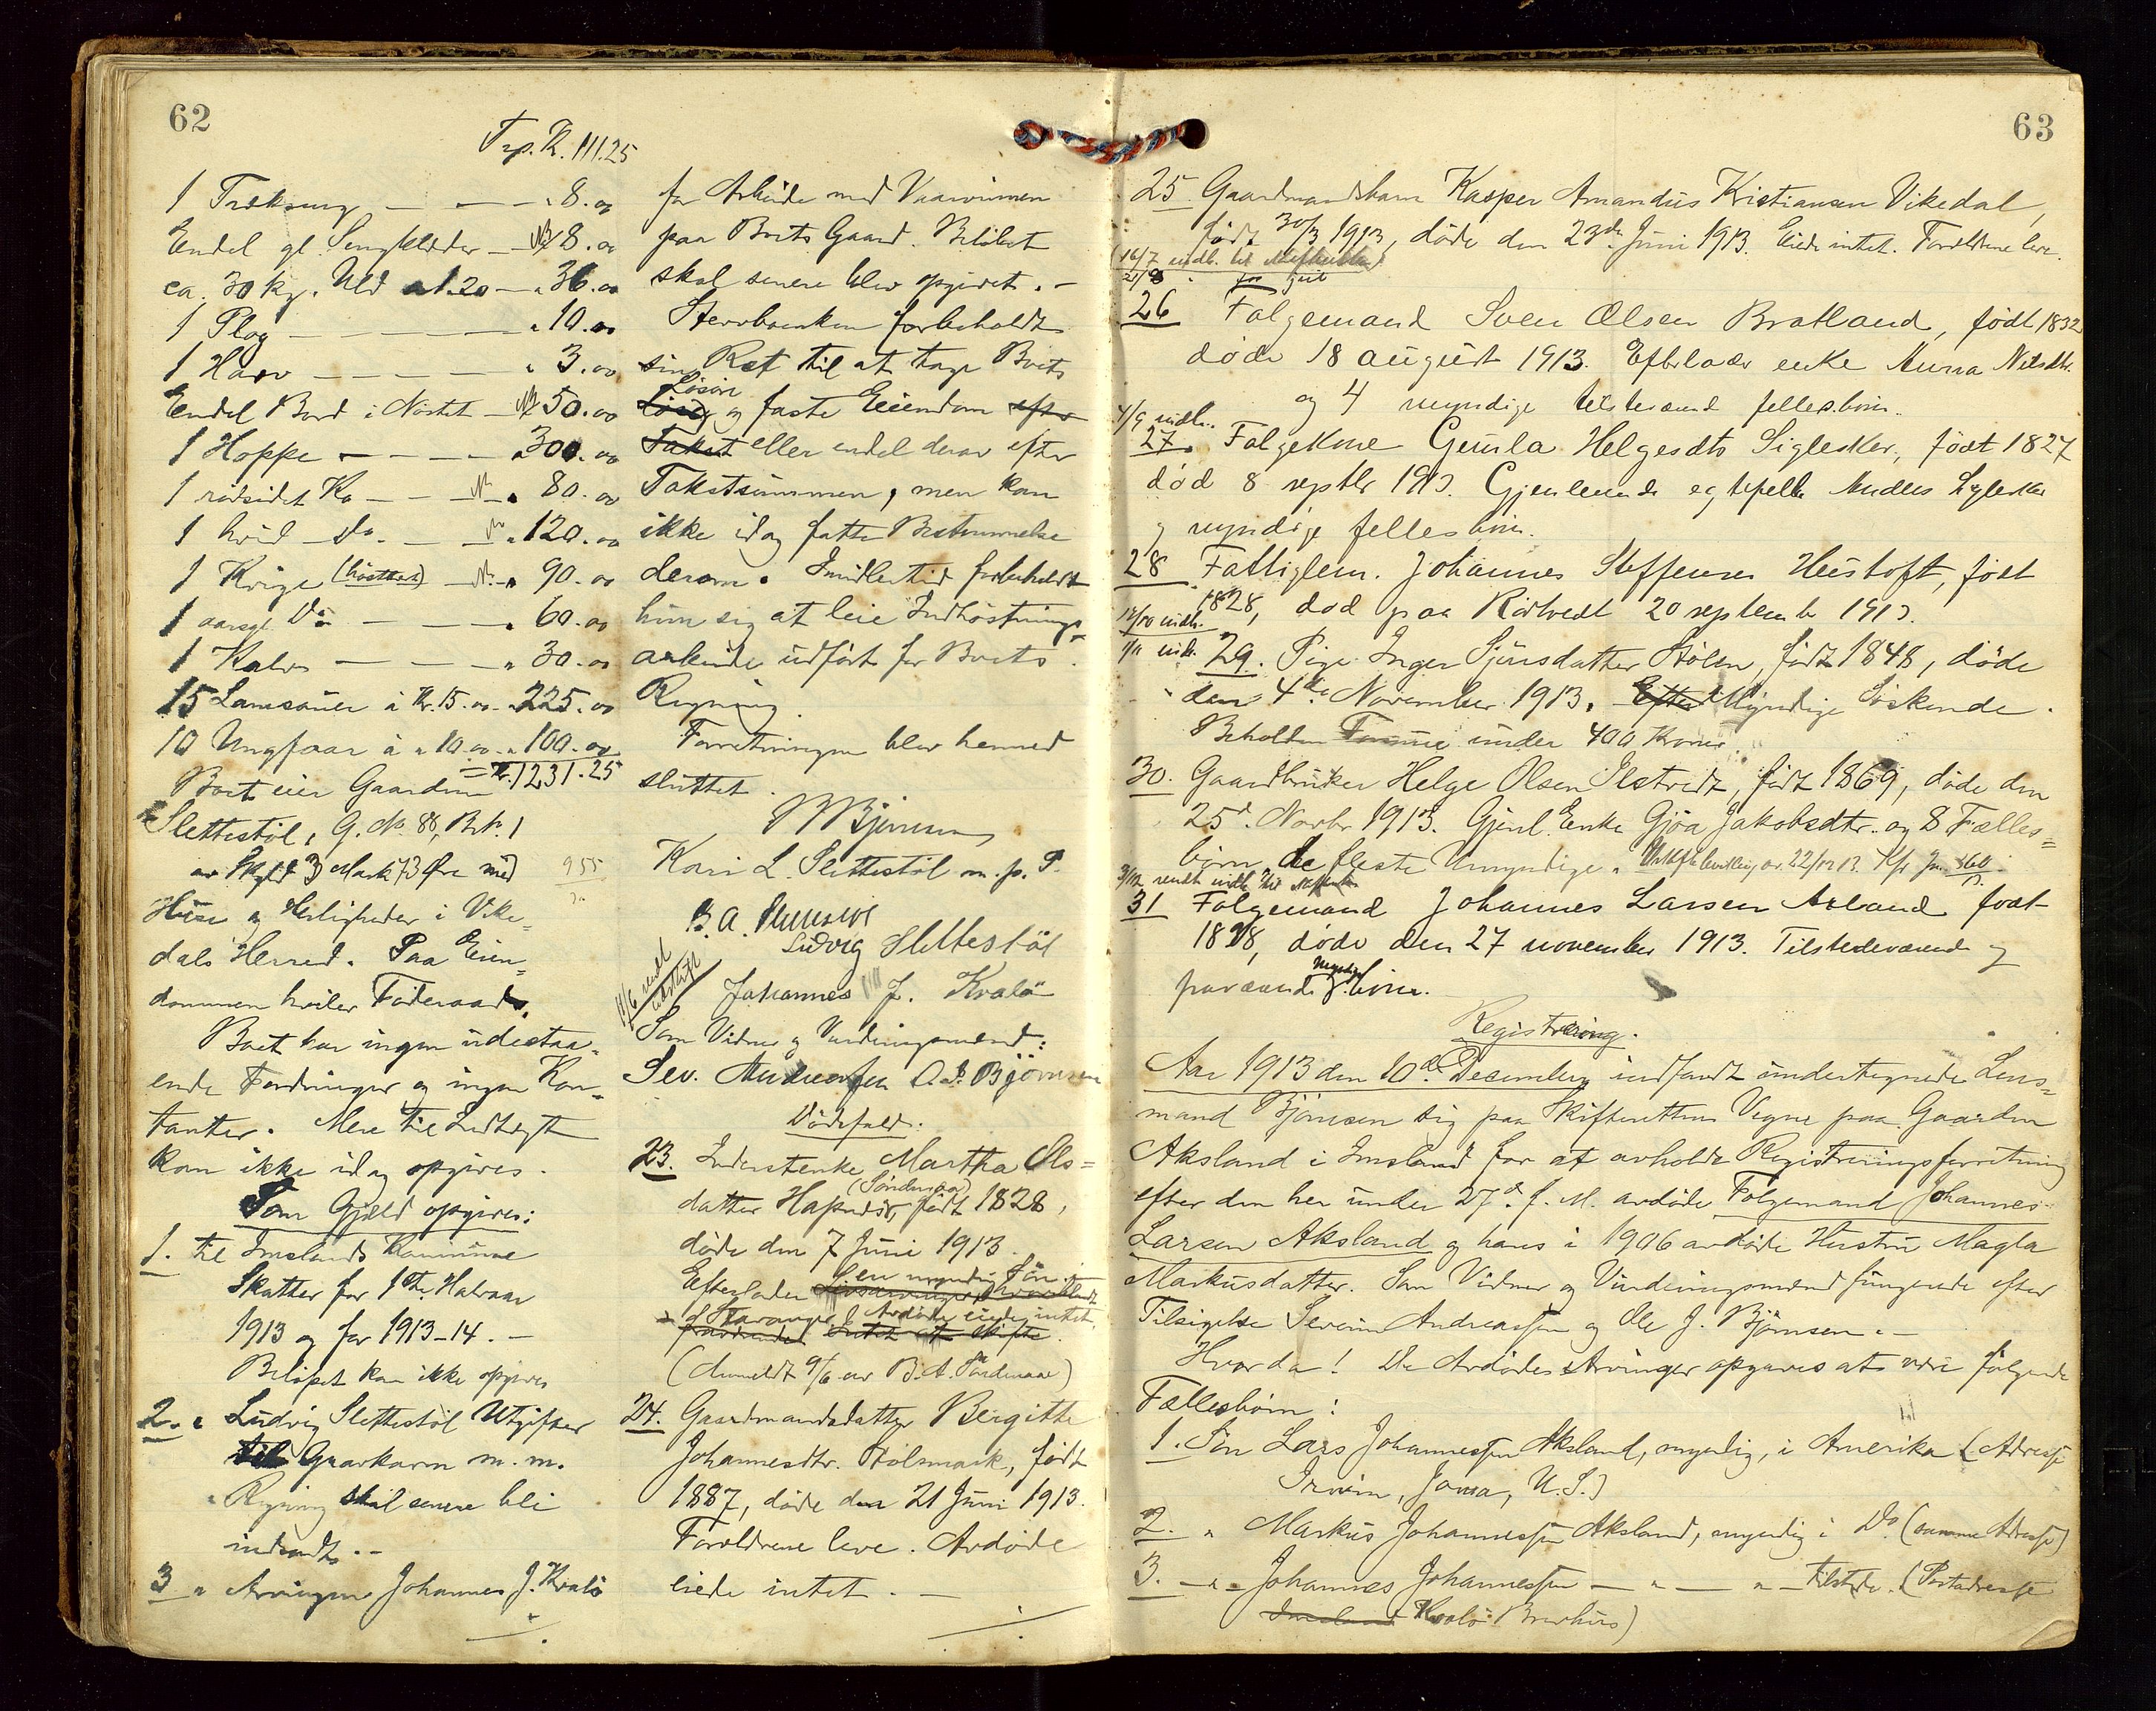 62
Trp. Kr. 111.25
1 Træksæng — — — „ 8.00
Endel gl. Sengklæder — 18.00
ca. 30 kg. Uld a 1.20 — „ 36.00
1 Plog — — — „ 10.00
1 Harv — — — „ 3.00
Endel Bord i Nöstet — 50.00
1 Hoppe — — — „ 300.00
1 rödsidet Ko — — „ 80.00
1 hvid do. — — „ 120.00
1 Kvige (hösttid) — „ 90.00
1 aarsgl. Do — — — „ 60.00
1 Kalv — — — „ 30.00
15 Lamsauer á Kr. 15.00 „ 225.00
10 Ungfaar á „ 10.00 „ 100.00
= Kr. 1231.25
Boet eier Gaarden
Slettestöl, G. No. 88, Br.No. 1
av Skyld 3 Mark 73 Øre med
955
Huse og Herligheder i Vike-
dals Herred. Paa Eien-
dommen hviler Föderaad.
Boet har ingen udestaa-
ende Fordringer og ingen Kon-
tanter. Mere til Indtægt
kan ikke idag opgives.
Som Gjæld opgives:
1. til Imslands Kommune
Skatter for 1ste Halvaar
1913 og for 1913-14. —
Beløpet kan ikke opgives
2. „ Ludvig Slettestöl Utgifter
til Gravkarm m.m.
Regning skal senere bli
indsendt. —
3 „ Arvingen Johannes J. Kvalö
for Arbeide med Vaarvinnen
paa Boets Gaard. Belöbet
skal senere blev opgivet. —
Stervboenken forbeholdt
sin Ret til at tage Boets
Lösöre
og faste Eiendom efter
Takst eller endel derav efter
Takstsummen, men kan
ikke idag fatte Bestemmelse
derom. Imidlertid forbeholdt
hun sig at leie Indhöstnings-
arbeide udfört for Boets
Regning.
Forretningen blev hermed
sluttet.
B Björnsen
Kari L. Slettestöl m. p. P.
B. A.
Ludvig Slettestöl
11/6 sendt
utskrift
Johannes J. Kvalö
Som Vidner og Vurderingsmænd:
Sev. Andreassen O. J. Björnsen
Dödsfald:
23. Inderstenke Martha Ols-
(Söndenaa)
datter Hapnes, födt 1828,
döde den 7 Juni 1913.
en myndig Sön
Efterlader Livsarvinger
i Stavanger. Avdöde eiede intet.
fraværende Intet at skifte.
(Anmeldt 9/6 av B. A. Söndenaa)
24. Gaardmandsdatter Bergitte
Johannesdtr. Stölsmark, födt
1887, döde den 21 Juni 1913.
Forældrene leve. Avdöde
eiede intet. —
63
25 Gaardmandsbarn Kasper Amandus Kristiansen Vikedal,
födt 30/3 1913, döde den 23de Juni 1913. Eiede intet. Forældrene leve.
16/7 indb. til Skifteretten
21/8
26 Folgemand Sven Olsen Bratland, födt 1832
döde 18 august 1913. Efterlader enke Anna Nilsdtr.
og 4 myndige tilsteværend fellesbörn.
4/9 indb.
27. Folgekone Gunla Helgesdtr Sigleskar, födt 1827
död 8 septbr 1913. Gjenlevende egtefelle Anders Sigleskar
og myndige fellesbörn.
28 Fattiglem. Johannes Steffensen Hustoft, födt
1828, död paa Rödtvedt 20 september 1913.
13/10 indb.
29. Pige Inger Sjursdatter Stölen, födt 1848, döde
den 4de November 1913. Efterl Myndige Söskende.
Beholden Formue under 400 Kroner.
30. Gaardbruker Helge Olsen Ilstvedt, födt 1869, döde den
25de Novbr 1913. Gjenl. Enke Gjöa Jakobsdtr. og 8 Fælles-
börn, de fleste Umyndige. Uskiftebevilling av 22/12 13.
31 Folgemand Johannes Larsen Axland födt
1828, döde den 27 november 1913. Tilstedeværende og
fraværende myndige börn.
Registrering.
Aar 1913 den 10de December indfandt undertegnede Lens-
mand Björnsen sig paa Skifterettens Vegne paa Gaarden
Aksland i Imsland for at avholde Registreringsforretning
efter den her under 27de f. M. avdöde Folgemand Johannes
Larsen Aksland og hans i 1906 avdöde Hustru Magla
Markusdatter. Som Vidner og Vurderingsmænd fungerede efter
Tilsigelse Severin Andreassen og Ole J. Björnsen. —
Hvorda! De Avdödes Arvinger opgaves at være fölgende
Fællesbörn:
1. Sön Lars Johannessen Aksland, myndig, i Amerika (Adresse
Irwin, Jowa, U.S.)
2. „ Markus Johannessen Aksland, myndig i Do (samme Adresse)
3. — „ — Johannes Johannessen — „ — „ — tilstede. (Postadresse
Imsland Kvalö Brevhus)